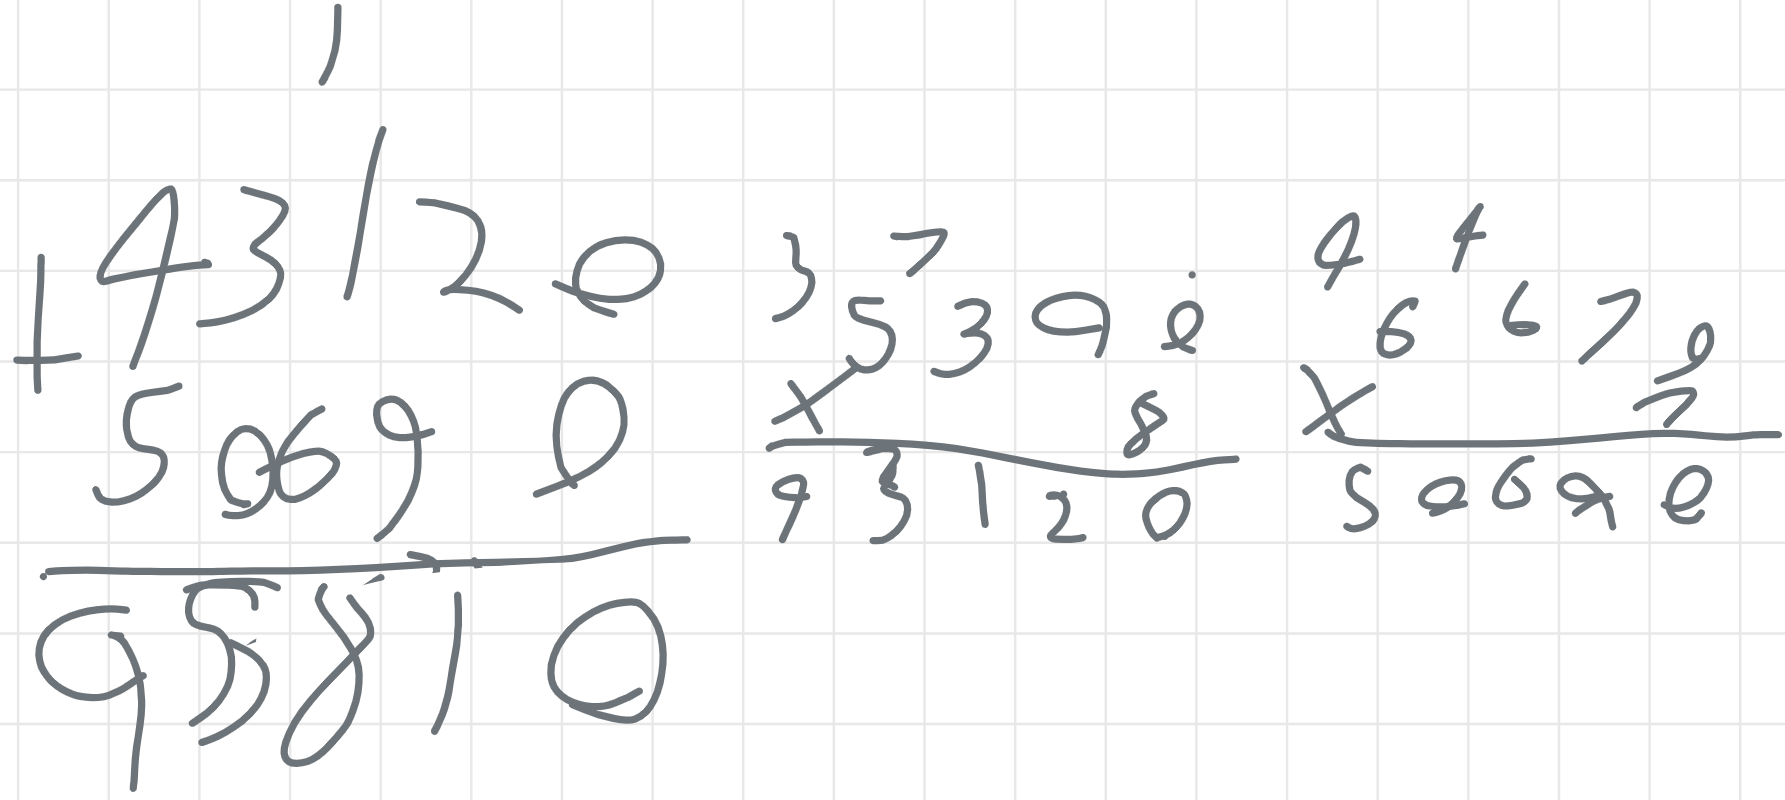 1
43120
+ 50690
93810
3 7
5390
× 8
43120
4 4
6670
× 7
50690